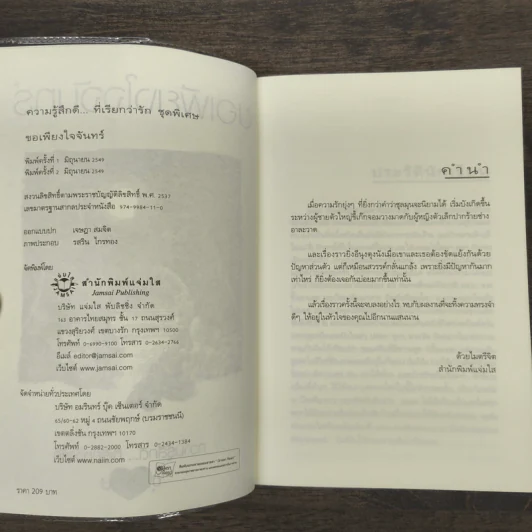 ความรู้สึกดี... ที่เรียกว่ารัก ชุดพิเศษ
ขอเพียงใจจันทร์
พิมพ์ครั้งที่ 1 มิถุนายน 2549
พิมพ์ครั้งที่ 2 มิถุนายน 2549
สงวนลิขสิทธิ์ตามพระราชบัญญัติลิขสิทธิ์ พ.ศ. 2537
เลขมาตรฐานสากลประจำหนังสือ 974-9984-11-6
ออกแบบปก เจษฎา สมจิต
ภาพประกอบ รสริน ไกรทอง
จัดพิมพ์โดย
สำนักพิมพ์แจ่มใส
Jamsai Publishing
บริษัท แจ่มใส พับลิชชิ่ง จำกัด
163 อาคารไทยสมุทร ชั้น 17 ถนนสุรวงศ์
แขวงสุริยวงศ์ เขตบางรัก กรุงเทพฯ 10500
โทรศัพท์ 0-6990-9100 โทรสาร 0-2634-2766
อีเมล์ editor@jamsai.com
เว็บไซต์ www.jamsai.com
จัดจำหน่ายทั่วประเทศโดย
บริษัท อมรินทร์ บุ๊ค เซ็นเตอร์ จำกัด
65/60-62 หมู่ 4 ถนนชัยพฤกษ์ (บรมราชชนนี)
เขตตลิ่งชัน กรุงเทพฯ 10170
โทรศัพท์ 0-2882-2000 โทรสาร 0-2434-1384
เว็บไซต์ www.naiin.com
ราคา 209 บาท
คำนำ
เมื่อความรักยุ่งๆ ที่ยิ่งกว่าคำว่าชุลมุนจะนิยามได้ เริ่มบังเกิดขึ้น
ระหว่างผู้ชายตัวใหญ่ขี้เก๊กจอมวางมาดกับผู้หญิงตัวเล็กปากร้ายช่าง
อาละวาด
และเรื่องราวยิ่งอีนุงตุงนังเมื่อเขาและเธอต้องขัดแย้งกันด้วย
ปัญหาส่วนตัว แต่ก็เหมือนสวรรค์กลั่นแกล้ง เพราะยิ่งมีปัญหากันมาก
เท่าไหร่ ก็ยิ่งต้องเจอกันบ่อยมากขึ้นเท่านั้น
แล้วเรื่องราวครั้งนี้จะจบลงอย่างไร พบกับผลงานที่จะทิ้งความทรงจำ
ดีๆ ให้อยู่ในหัวใจของคุณไปอีกนานแสนนาน
ด้วยไมตรีจิต
สำนักพิมพ์แจ่มใส